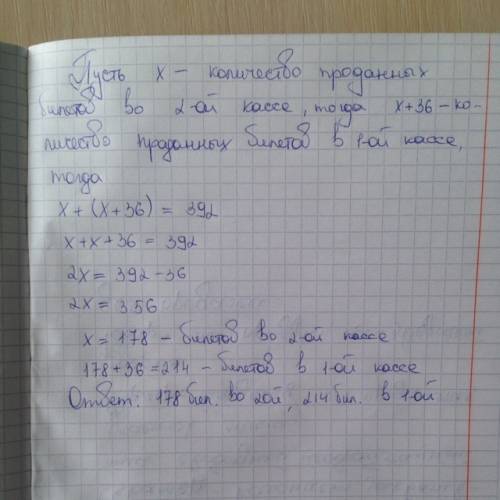 Пусть х – количество проданных
билетов во 2-ой кассе, тогда х+36 – ко-
личество проданных билетов в 1-ой кассе,
тогда
х + (х + 36) = 392
х + х + 36 = 392
2х = 392 – 36
2х = 356
х = 178 – билетов во 2-ой кассе
178 + 36 = 214 – билетов в 1-ой кассе
Ответ: 178 бил. во 2ой, 214 бил. в 1-ой